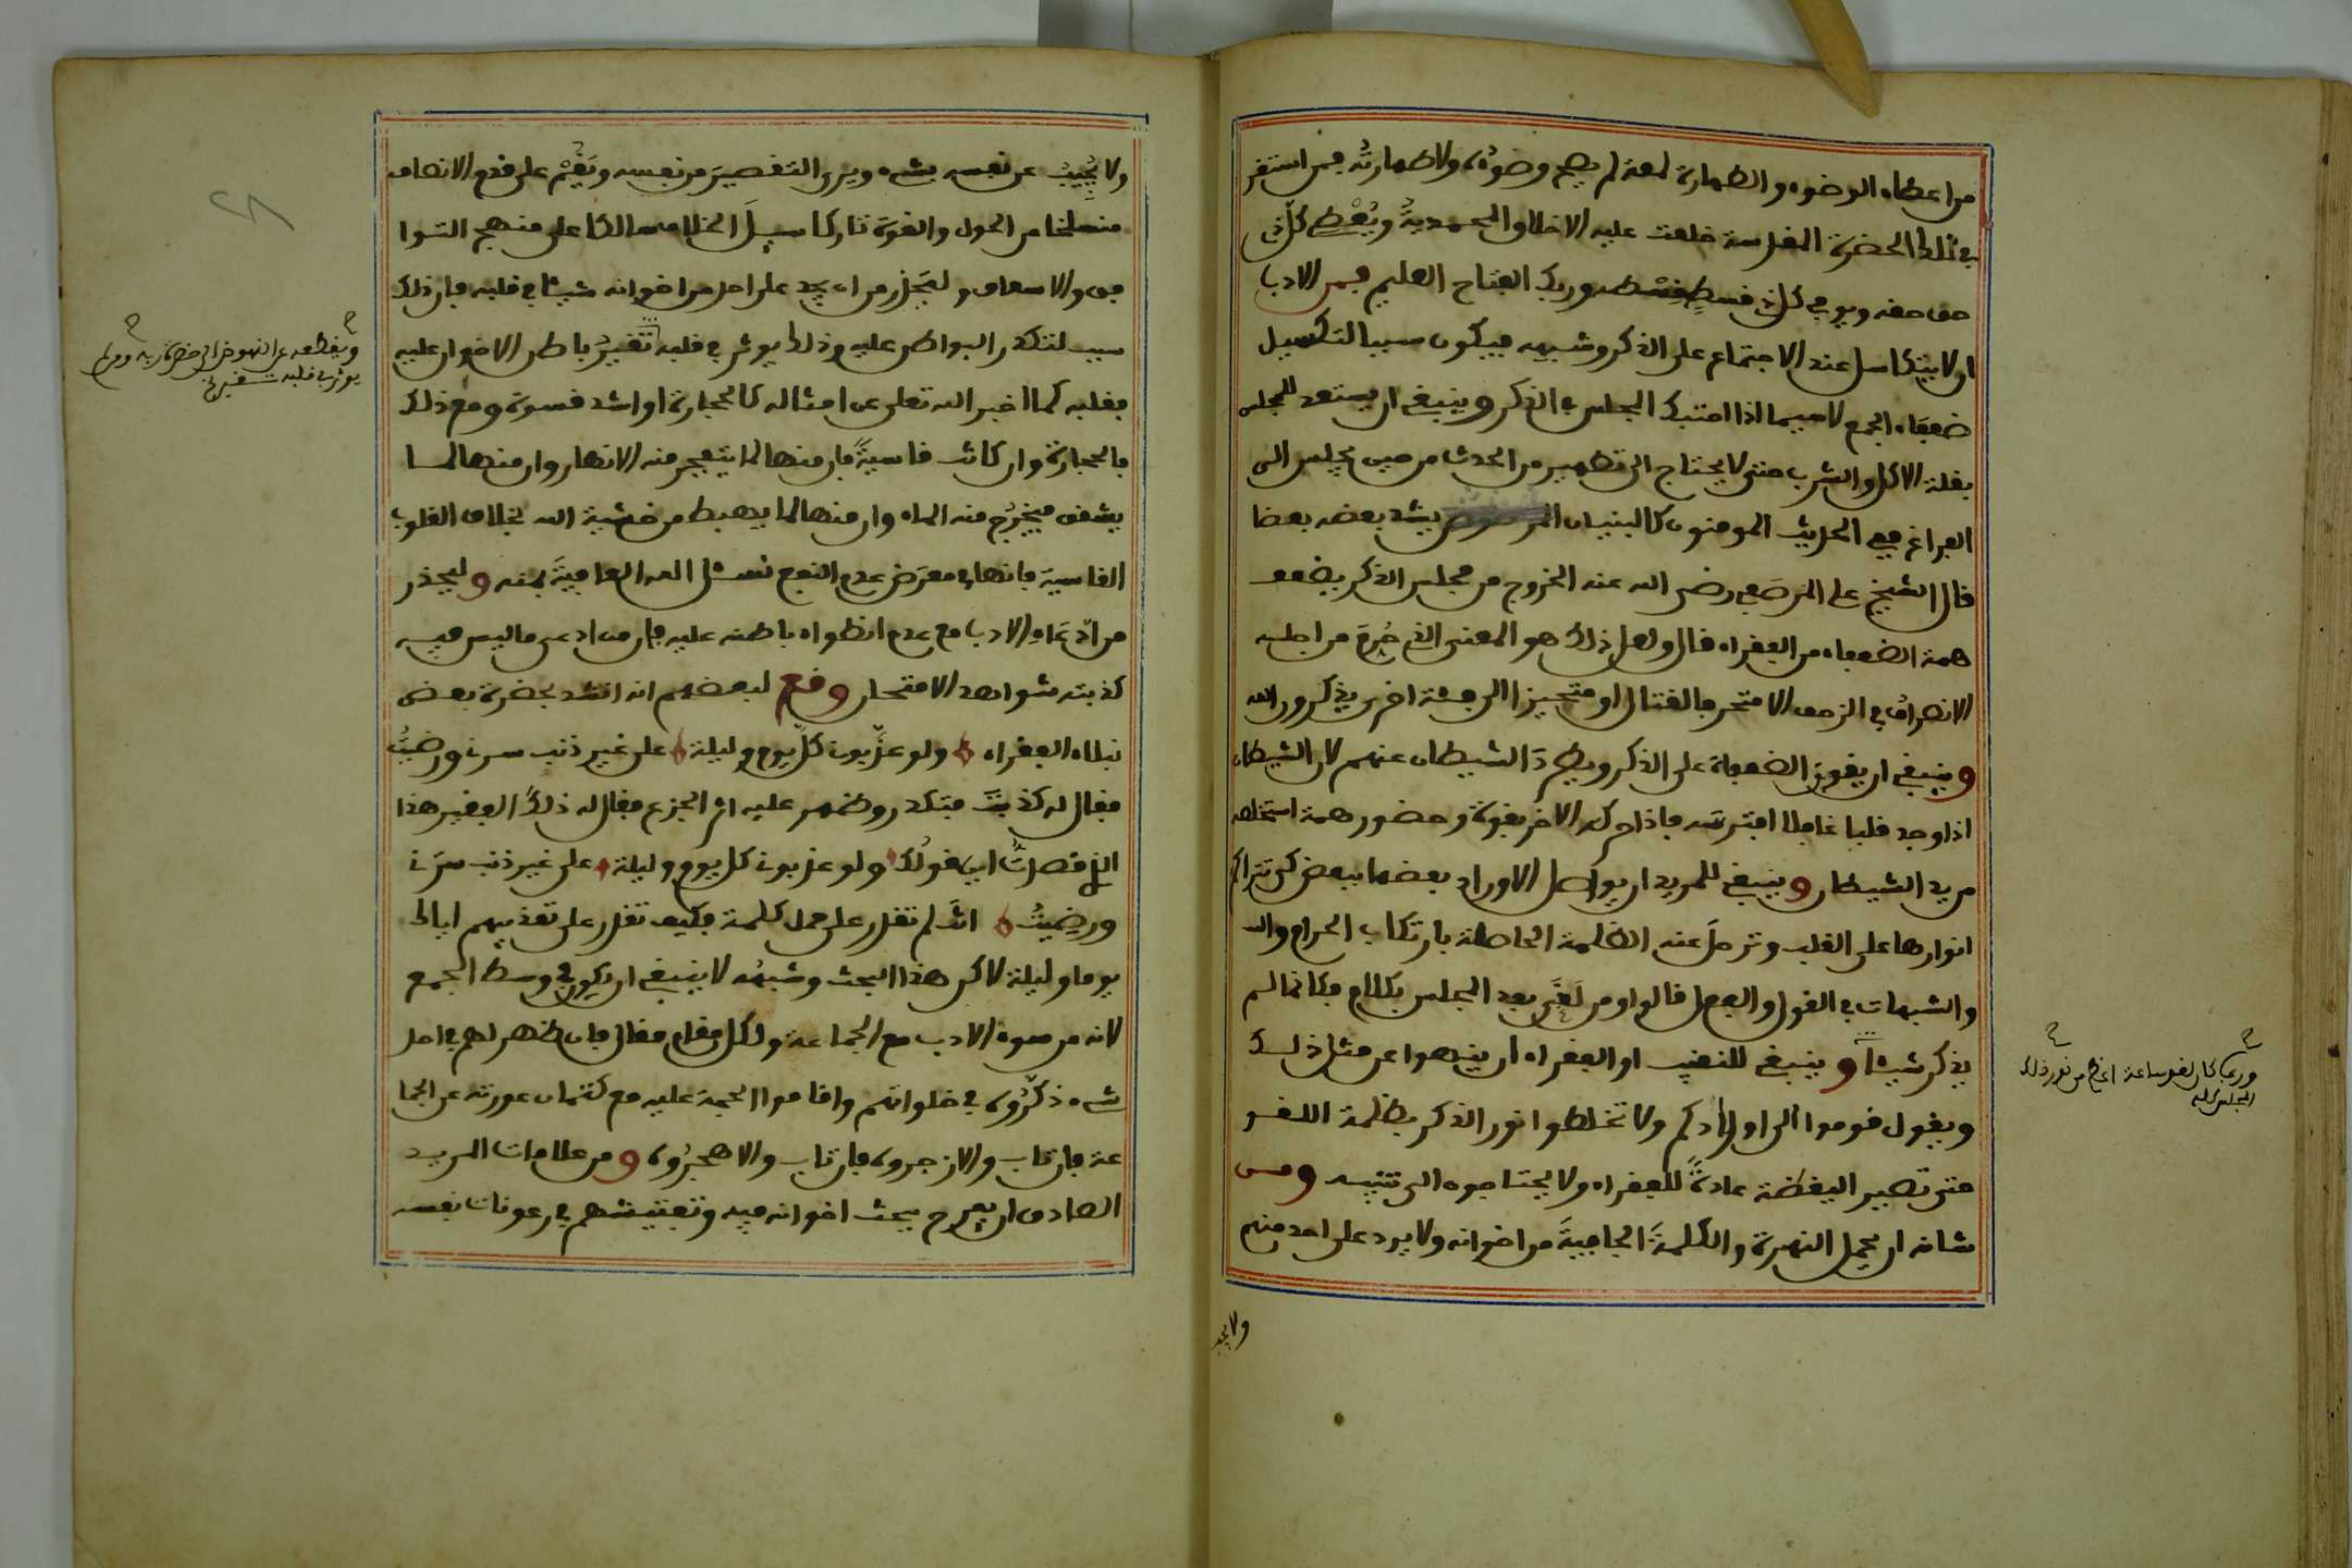 من اعضاء الوضوء والطهارة لمعة لم يصح وضوءُه ولا طهارتُه فمن استقر
في تلك الحضرة المقدسة خلعت عليه الاخلاق المحمديةُ ويُعْطى كلّ ذى
حق حقه ويوفى كل ذى قسطٍ قِسْطه وربك الفتاح العليم فمن الادب
ان لا يتكاسل عند الاجتماع على الذكر وشبهه فيكون سببا لتكسيل
ضعفاء الجمع لاسيما اذا احتبك المجلس فى الذكر وينبغى ان يستعد للمجلس
بقلة الاكل والشرب حتى لا يحتاج الى تطهير من الحدث من حين يجلس الى
الفراغ ففى الحديث المومنون كالبنيان يشد بعضه بعضا
قال الشيخ على المرصفى رضى الله عنه الخروج من مجلس الذكر يضعف
همة الضعفاء من الفقراء قال ولعل ذلك هو المعنى الذى حُرِّمَ من اجله
الانصرافُ فى الزحف الا متحرفا لقتال او متحيزا الى فئة اخرى يذكرون الله
وينبغى ان يقوى الضعفاء على الذكر ويطردَ الشيطان عنهم لان الشيطان
اذا وجد قلبا غافلا افترسه فاذا ذكر الاخر بقوة وحضور همة استخلصه
من يد الشيطان وينبغى للمريد ان يواصل الاوراد بعضها ببعض كى تتراكم
انوارها على القلب وترحلَ عنه الظلمة الحاصلة بارتكاب الحرام والله
والشبهات فى القول والفعل قالوا ومن لَغَى بعد المجلس بكلام فكانما لم
يذكر شيئا وينبغى للنقيب او الفقراء ان ينهوا عن مثل ذلك
ويقول قوموا الى اورادكم ولا تخلطوا نور الذكر بظلمة اللغو
حتى تصير اليقظة عادةً للفقراء ولا يحتاجون الى تنبيه ومن
شانه ان يحمل النهرة والكلمةَ الجافيةَ من اخوانه ولا يرد على احد منهم
وربما كان لغو ساعة ارجح من نور ذلك
المجلس كله
ولا يجيب
ولا يُجِيبُ عن نفسه بشىء ويرى التقصيرَ من نفسه ويَقُمْ على قدم الانصاف
منسلخا من الحول والقوة تاركا سبيلَ الخلاف سالكا على منهج التوا
فق والاسعاف وليَحْذر من ان يجد على احد من اخوانه شيئا فى قلبه فان ذلك
سبب لتكدر البواطن عليه وذلك يوثر فى قلبه تَغَيُّرُ باطن الاخوان عليه
فقلبه كما اخبر الله تعلى عن امثاله كالحجارة او اشد قسوة ومع ذلك
فالحجارة وان كانت قاسيةً فان منها لما يتفجر منه الانهار وان منها لما
يشقق فيخرُج منه الماء وان منها لما يهبط من خشية الله بخلاف القلوب
القاسية فانها فى معرَض عدم النفع نسئل الله العافيةَ بمنه وليحذر
من ادّعاءِ الادب مع عدم انطواء باطنه عليه فان من ادعى ما ليس فيه
كذبته شواهد الامتحان وقع لبعضهم انه انشد بحضرة بعض
نبلاء الفقراء ولو عذّبونى كلّ يومٍ وليلة على غير ذنب سرنى ورضيتُ
فقال له كذبتَ فتكدر وظهر عليه اثر الجزع فقال له ذلك الفقير هذا
الذى قصدتُ اين قولُك ولو عذبونى كل يوم وليلة على غير ذنب سرَّنى
ورضِيتُ انت لم تقدر على حمل كلمة فكيف تقدر على تعذيبهم اياك
يوما وليلة لاكن هذا البحث وشبهُه لا ينبغى ان يكون فى وسط الجمع
لانه من سوء الادب مع الجماعة ولكل مقام مقال فان ظهر لهم فى احد
شىء ذكَّرُوه فى خلواتهم واقاموا الحجة عليه مع كتمان عورته عن الجما
عة فان تاب والا زجروه فان تاب والا هجرُوه ومن علامات المريد
الصادق ان يفرح ببحث اخوانه فيه وتفتيشهم فى رعونات نفسه